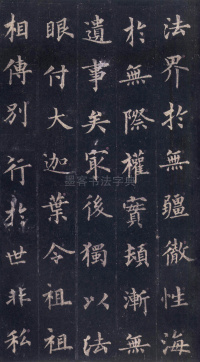 法界於無疆徹性海
於無際權實頓漸無
遺事矣最後獨以法
眼付大迦葉令祖祖
相傳別行於世非私
墨客书法字典